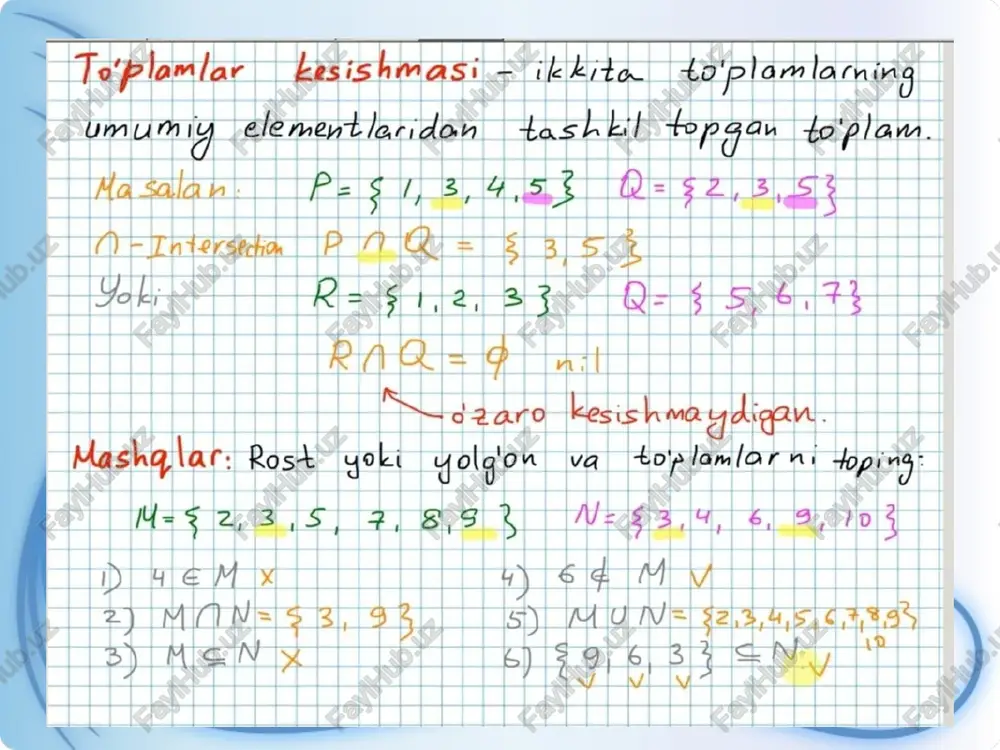 To'plamlar kesishmasi - ikkita to'plamlarning
umumiy elementlaridan tashkil topgan to'plam.
Masalan: P = { 1, 3, 4, 5 } Q = { 2, 3, 5 }
∩ - Intersection P ∩ Q = { 3, 5 }
Yoki R = { 1, 2, 3 } Q = { 5, 6, 7 }
R ∩ Q = ϕ nil
o'zaro kesishmaydigan.
Mashqlar: Rost yoki yolg'on va to'plamlarni toping:
M = { 2, 3, 5, 7, 8, 9 } N = { 3, 4, 6, 9, 10 }
1) 4 ∈ M x 4) 6 ∉ M ✓
2) M ∩ N = { 3, 9 } 5) M ∪ N = {2,3,4,5,6,7,8,9}
10
3) M ⊆ N x 6) { 9, 6, 3 } ⊆ N ✓
✓ ✓ ✓
FaylHub.uz